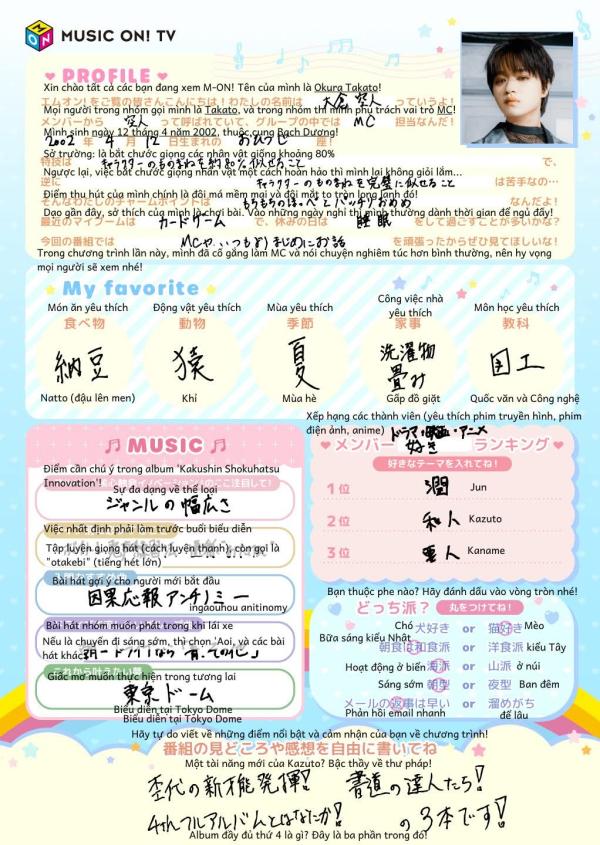 MUSIC ON! TV
PROFILE
Xin chào tất cả các bạn đang xem M-ON! Tên của mình là Okura Takato!
エムオン!をご覧の皆さんこんにちは!わたしの名前は 大倉空人 っていうよ!
Mọi người trong nhóm gọi mình là Takato, và trong nhóm thì mình phụ trách vai trò MC!
メンバーから 空人 って呼ばれていて、グループの中では MC 担当なんだ!
Mình sinh ngày 12 tháng 4 năm 2002, thuộc cung Bạch Dương!
2002 年 4 月 12 日生まれの おひつじ 座!
Sở trường: là bắt chước giọng các nhân vật giống khoảng 80%
特技は キャラクターのものまねを約80%似せること で、
Ngược lại, việc bắt chước giọng nhân vật một cách hoàn hảo thì mình lại không giỏi lắm...
逆に キャラクターのものまねを完璧に似せること は苦手なの…
Điểm thu hút của mình chính là đôi má mềm mại và đôi mắt to tròn long lanh đó!
そんなわたしのチャームポイントは もちもちのほっぺとパッチリおめめ なんだよ!
Dạo gần đây, sở thích của mình là chơi bài. Vào những ngày nghỉ thì mình thường dành thời gian để ngủ đấy!
最近のマイブームは カードゲーム で、休みの日は 睡眠 をして過ごすことが多いかな?
今回の番組では MCや、いつもよりまじめにお話 を頑張ったからぜひ見てほしいな!
Trong chương trình lần này, mình đã cố gắng làm MC và nói chuyện nghiêm túc hơn bình thường, nên hy vọng
mọi người sẽ xem nhé!
My favorite
Món ăn yêu thích
食べ物
納豆
Natto (đậu lên men)
Động vật yêu thích
動物
猿
Khỉ
Mùa yêu thích
季節
夏
Mùa hè
Công việc nhà
yêu thích
家事
洗濯物
畳み
Gấp đồ giặt
Môn học yêu thích
教科
国工
Quốc văn và Công nghệ
MUSIC
Điểm cần chú ý trong album 'Kakushin Shokuhatsu
Innovation'!
Sự đa dạng về thể loại
ジャンルの幅広さ
Việc nhất định phải làm trước buổi biểu diễn
Tập luyện giọng hát (cách luyện thanh), còn gọi là
"otakebi" (tiếng hét lớn)
Bài hát gợi ý cho người mới bắt đầu
因果応報アンチノミー
ingaouhou anitinomy
Bài hát nhóm muốn phát trong khi lái xe
Nếu là chuyến đi sáng sớm, thì chọn 'Aoi, và các bài
hát khác
Giấc mơ muốn thực hiện trong tương lai
これから叶えたい夢
東京ドーム
Biểu diễn tại Tokyo Dome
Biểu diễn tại Tokyo Dome
Xếp hạng các thành viên (yêu thích phim truyền hình, phim
điện ảnh, anime) ドラマ・映画・アニメ
メンバー 好き ランキング
好きなテーマを入れてね!
1位 潤 Jun
2位 和人 Kazuto
3位 要人 Kaname
Bạn thuộc phe nào? Hãy đánh dấu vào vòng tròn nhé!
どっち派? 丸をつけてね!
Chó 犬好き or 猫好き Mèo
Bữa sáng kiểu Nhật 朝食は和食派 or 洋食派 kiểu Tây
Hoạt động ở biển 海派 or 山派 ở núi
Sáng sớm 朝型 or 夜型 Ban đêm
メールの返事は早い or 溜めがち
Phản hồi email nhanh để lâu
Hãy tự do viết về những điểm nổi bật và cảm nhận của bạn về chương trình!
番組の見どころや感想を自由に書いてね
Một tài năng mới của Kazuto? Bậc thầy về thư pháp!
の新才能発揮! 書道の達人たち!
4thフルアルバムとはなたか! の3本です!
Album đầy đủ thứ 4 là gì? Đây là ba phần trong đó!